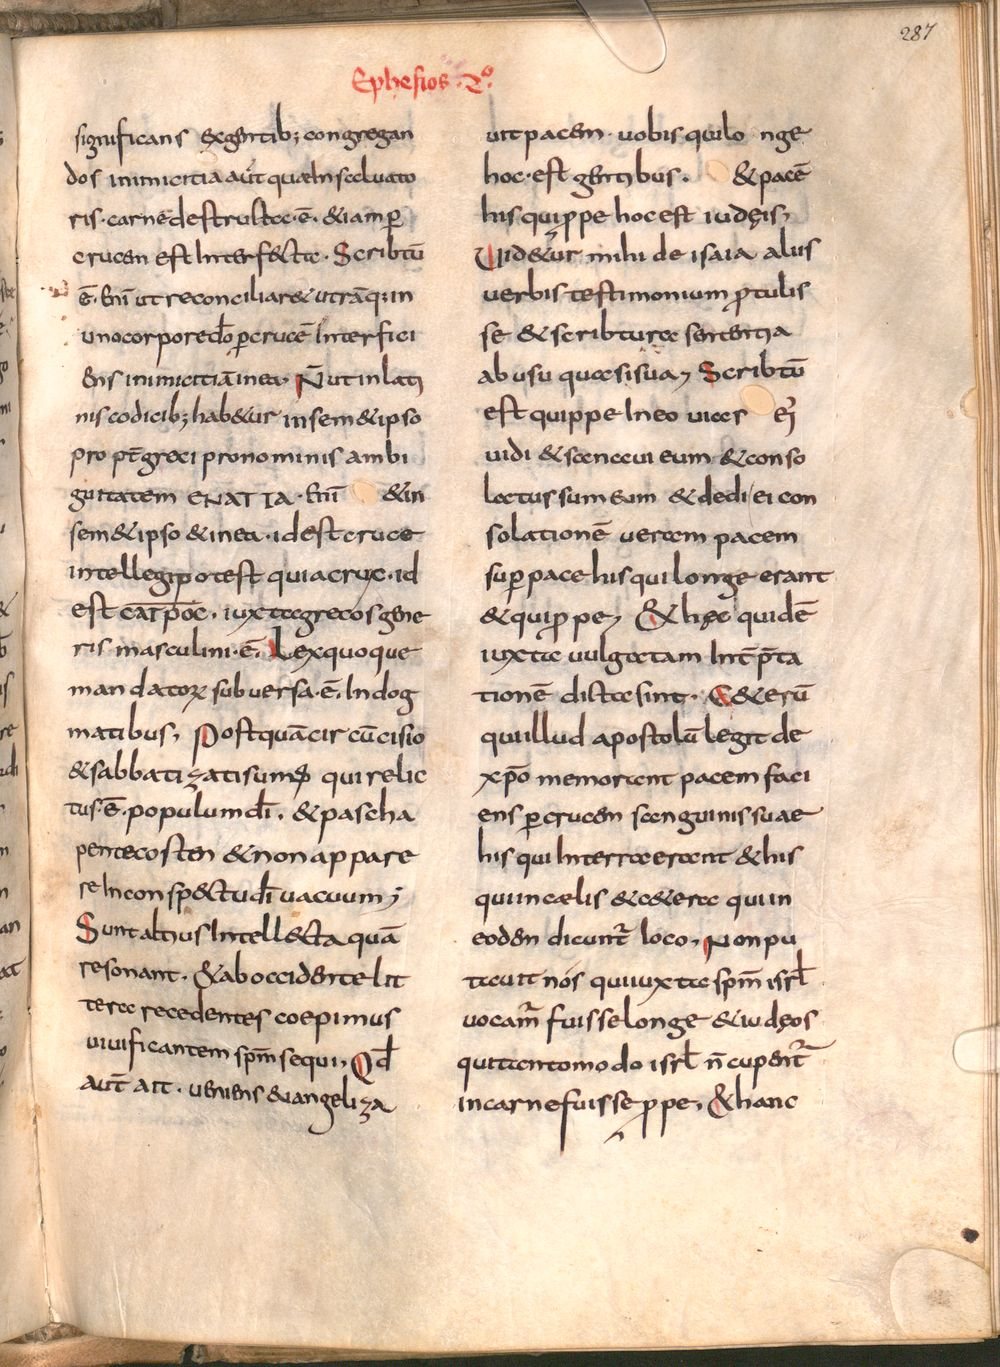 287
Ephesios .2º.
significans ex gentib; congregan
dos inimicitia aut quae In saluato
ris. carne destructa. ē. & iam p̄
crucem est Interfecta. Scribtū
ē. enī ut reconciliar& utrāq; in
uno corpore dō p crucē Interfici
ens inimicitiā in ea. Nut in lati
nis codicib; hab&ur in sem&ipso
propt̄ greci pronominis ambi
guitatem ENAT IA. Enī & in
sem&ipso & in ea. id est cruce
intellegi potest quia crux. id
est CATPOC. iuxta grecos gene
ris masculini. ē. Lex quoque
mandatorꝝ subuersa. ē. In dog
matibus, Postquā circūcisio
& sabbatizati sum; qui relic
tus. ē. populum dī. & pascha
pentecosten & non appare
re In consp&tu dī uacuum;
Sunt altius Intell&ta quā
resonant. & ab occidente lit
tera recedentes coepimus
uiuificantem spm̄ sequi, Qd̄
aut̄ ait. ueniens euangeliza
uit pacem. uobis qui lo nge
hoc. est gentibus. & pacē
his quippe hoc est iudęis,
Uid&ur mihi de isaia aliis
uerbis testimonium ꝓtulis
se & scribturae sententia
ab usu quaesisua, Scribtū
est quippe In eo uias ei'
uidi & sanaui eum & conso
latus sum eum & dedi ei con
solationē ueram pacem
sup pace his qui longe erant
& qui ꝓpe, & hęc quidē
iuxta uulgatam Int̄p̄ta
tionē dicta sint. C&erū
qui illud apostolū legit de
xp̄o memorant pacem faci
ens p crucem sanguinis suae
his qui In terra erant & his
qui in cælis & c&era qui in
eodem dicunt̄ loco, Non pu
tauit nos qui iuxta spm̄ isrl̄
uocam̄ fuisse longe & iudęos
qui tantomodo isrl̄ n̄cupent̄
in carne fuisse ꝓpe, & hanc